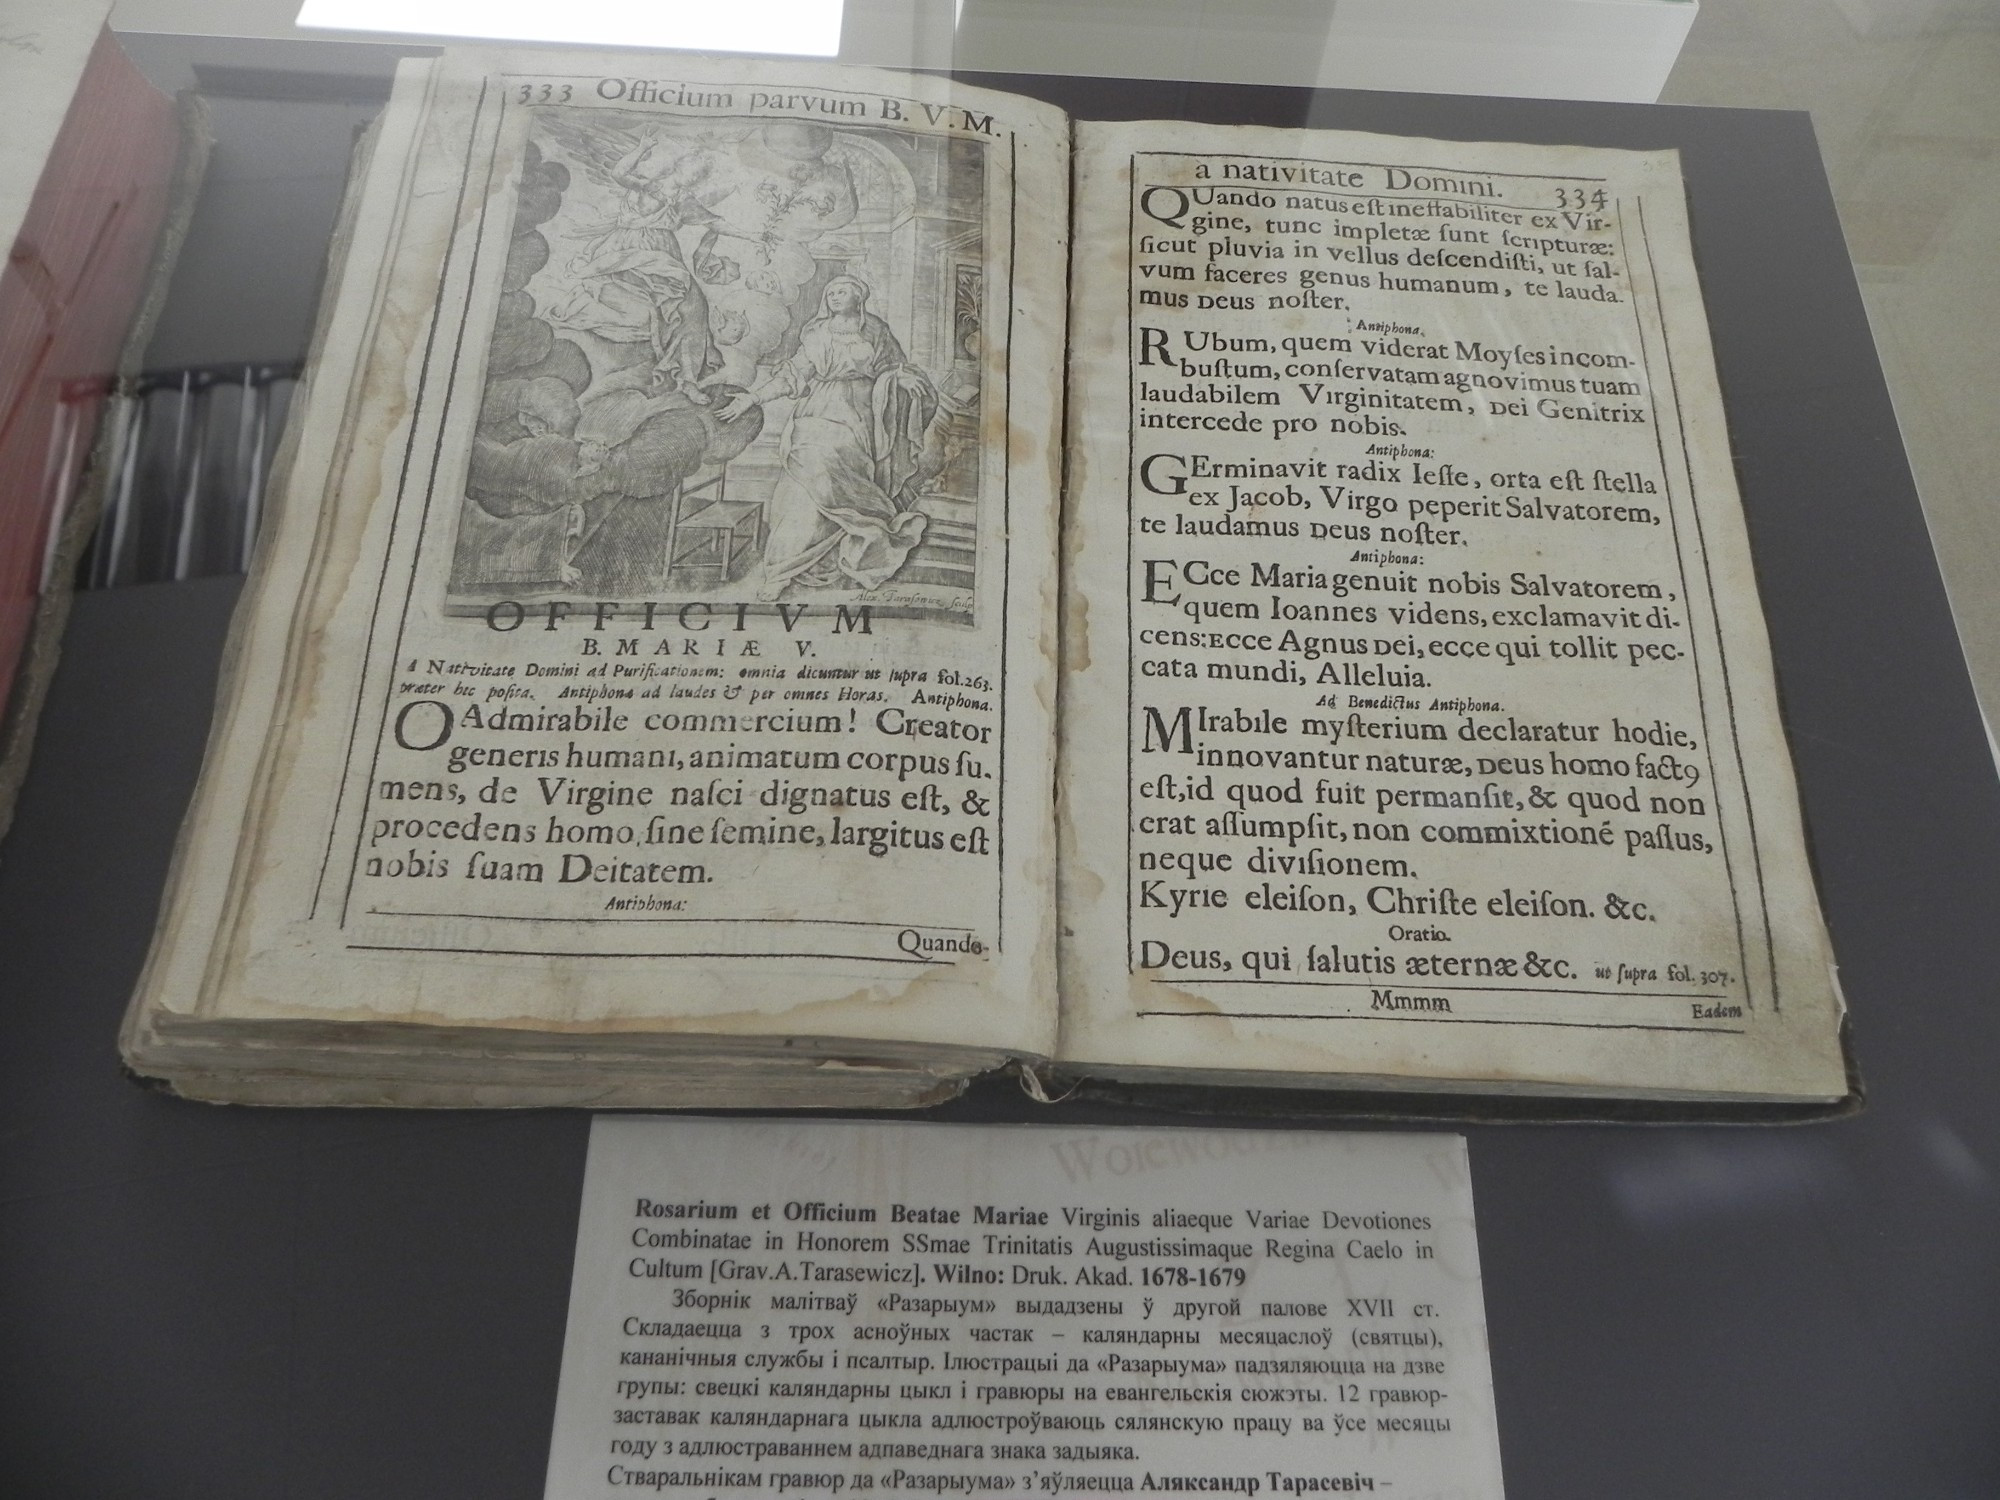 333 Officium parvum B. V. M.
Alex. Tarasowicz sculp
OFFICIVM
B. MARIÆ V.
A Nativitate Domini ad Purificationem: omnia dicuntur ut supra fol. 263.
præter hic posita. Antiphona ad laudes & per omnes Horas. Antiphona.
O Admirabile commercium! Creator
generis humani, animatum corpus su-
mens, de Virgine nasci dignatus est, &
procedens homo, sine semine, largitus est
nobis suam Deitatem.
Antiphona:
Quando-
a nativitate Domini. 334
QUando natus est ineffabiliter ex Vir-
gine, tunc impletæ sunt scripturæ:
sicut pluvia in vellus descendisti, ut sal-
vum faceres genus humanum, te lauda-
mus Deus noster.
Antiphona.
RUbum, quem viderat Moyses incom-
bustum, conservatam agnovimus tuam
laudabilem Virginitatem, Dei Genitrix
intercede pro nobis.
Antiphona:
GErminavit radix Iesse, orta est stella
ex Jacob, Virgo peperit Salvatorem,
te laudamus Deus noster.
Antiphona:
ECce Maria genuit nobis Salvatorem,
quem Ioannes videns, exclamavit di-
cens: Ecce Agnus Dei, ecce qui tollit pec-
cata mundi, Alleluia.
Ad Benedictus Antiphona.
MIrabile mysterium declaratur hodie,
innovantur naturæ, Deus homo factꝰ
est, id quod fuit permansit, & quod non
erat assumpsit, non commixtioné passus,
neque divisionem.
Kyrie eleison, Christe eleison. &c.
Oratio.
Deus, qui salutis æternæ &c. ut supra fol. 307.
Mmmm
Eadem
Rosarium et Officium Beatae Mariae Virginis aliaeque Variae Devotiones
Combinatae in Honorem SSmae Trinitatis Augustissimaque Regina Caelo in
Cultum [Grav.A.Tarasewicz]. Wilno: Druk. Akad. 1678-1679
Зборнік малітваў «Разарыум» выдадзены ў другой палове XVII ст.
Складаецца з трох асноўных частак – каляндарны месяцаслоў (святцы),
кананічныя службы і псалтыр. Ілюстрацыі да «Разарыума» падзяляюцца на дзве
групы: свецкі каляндарны цыкл і гравюры на евангельскія сюжэты. 12 гравюр-
заставак каляндарнага цыкла адлюстроўваюць сялянскую працу ва ўсе месяцы
году з адлюстраваннем адпаведнага знака задыяка.
Стваральнікам гравюр да «Разарыума» з’яўляецца Аляксандр Тарасевіч –